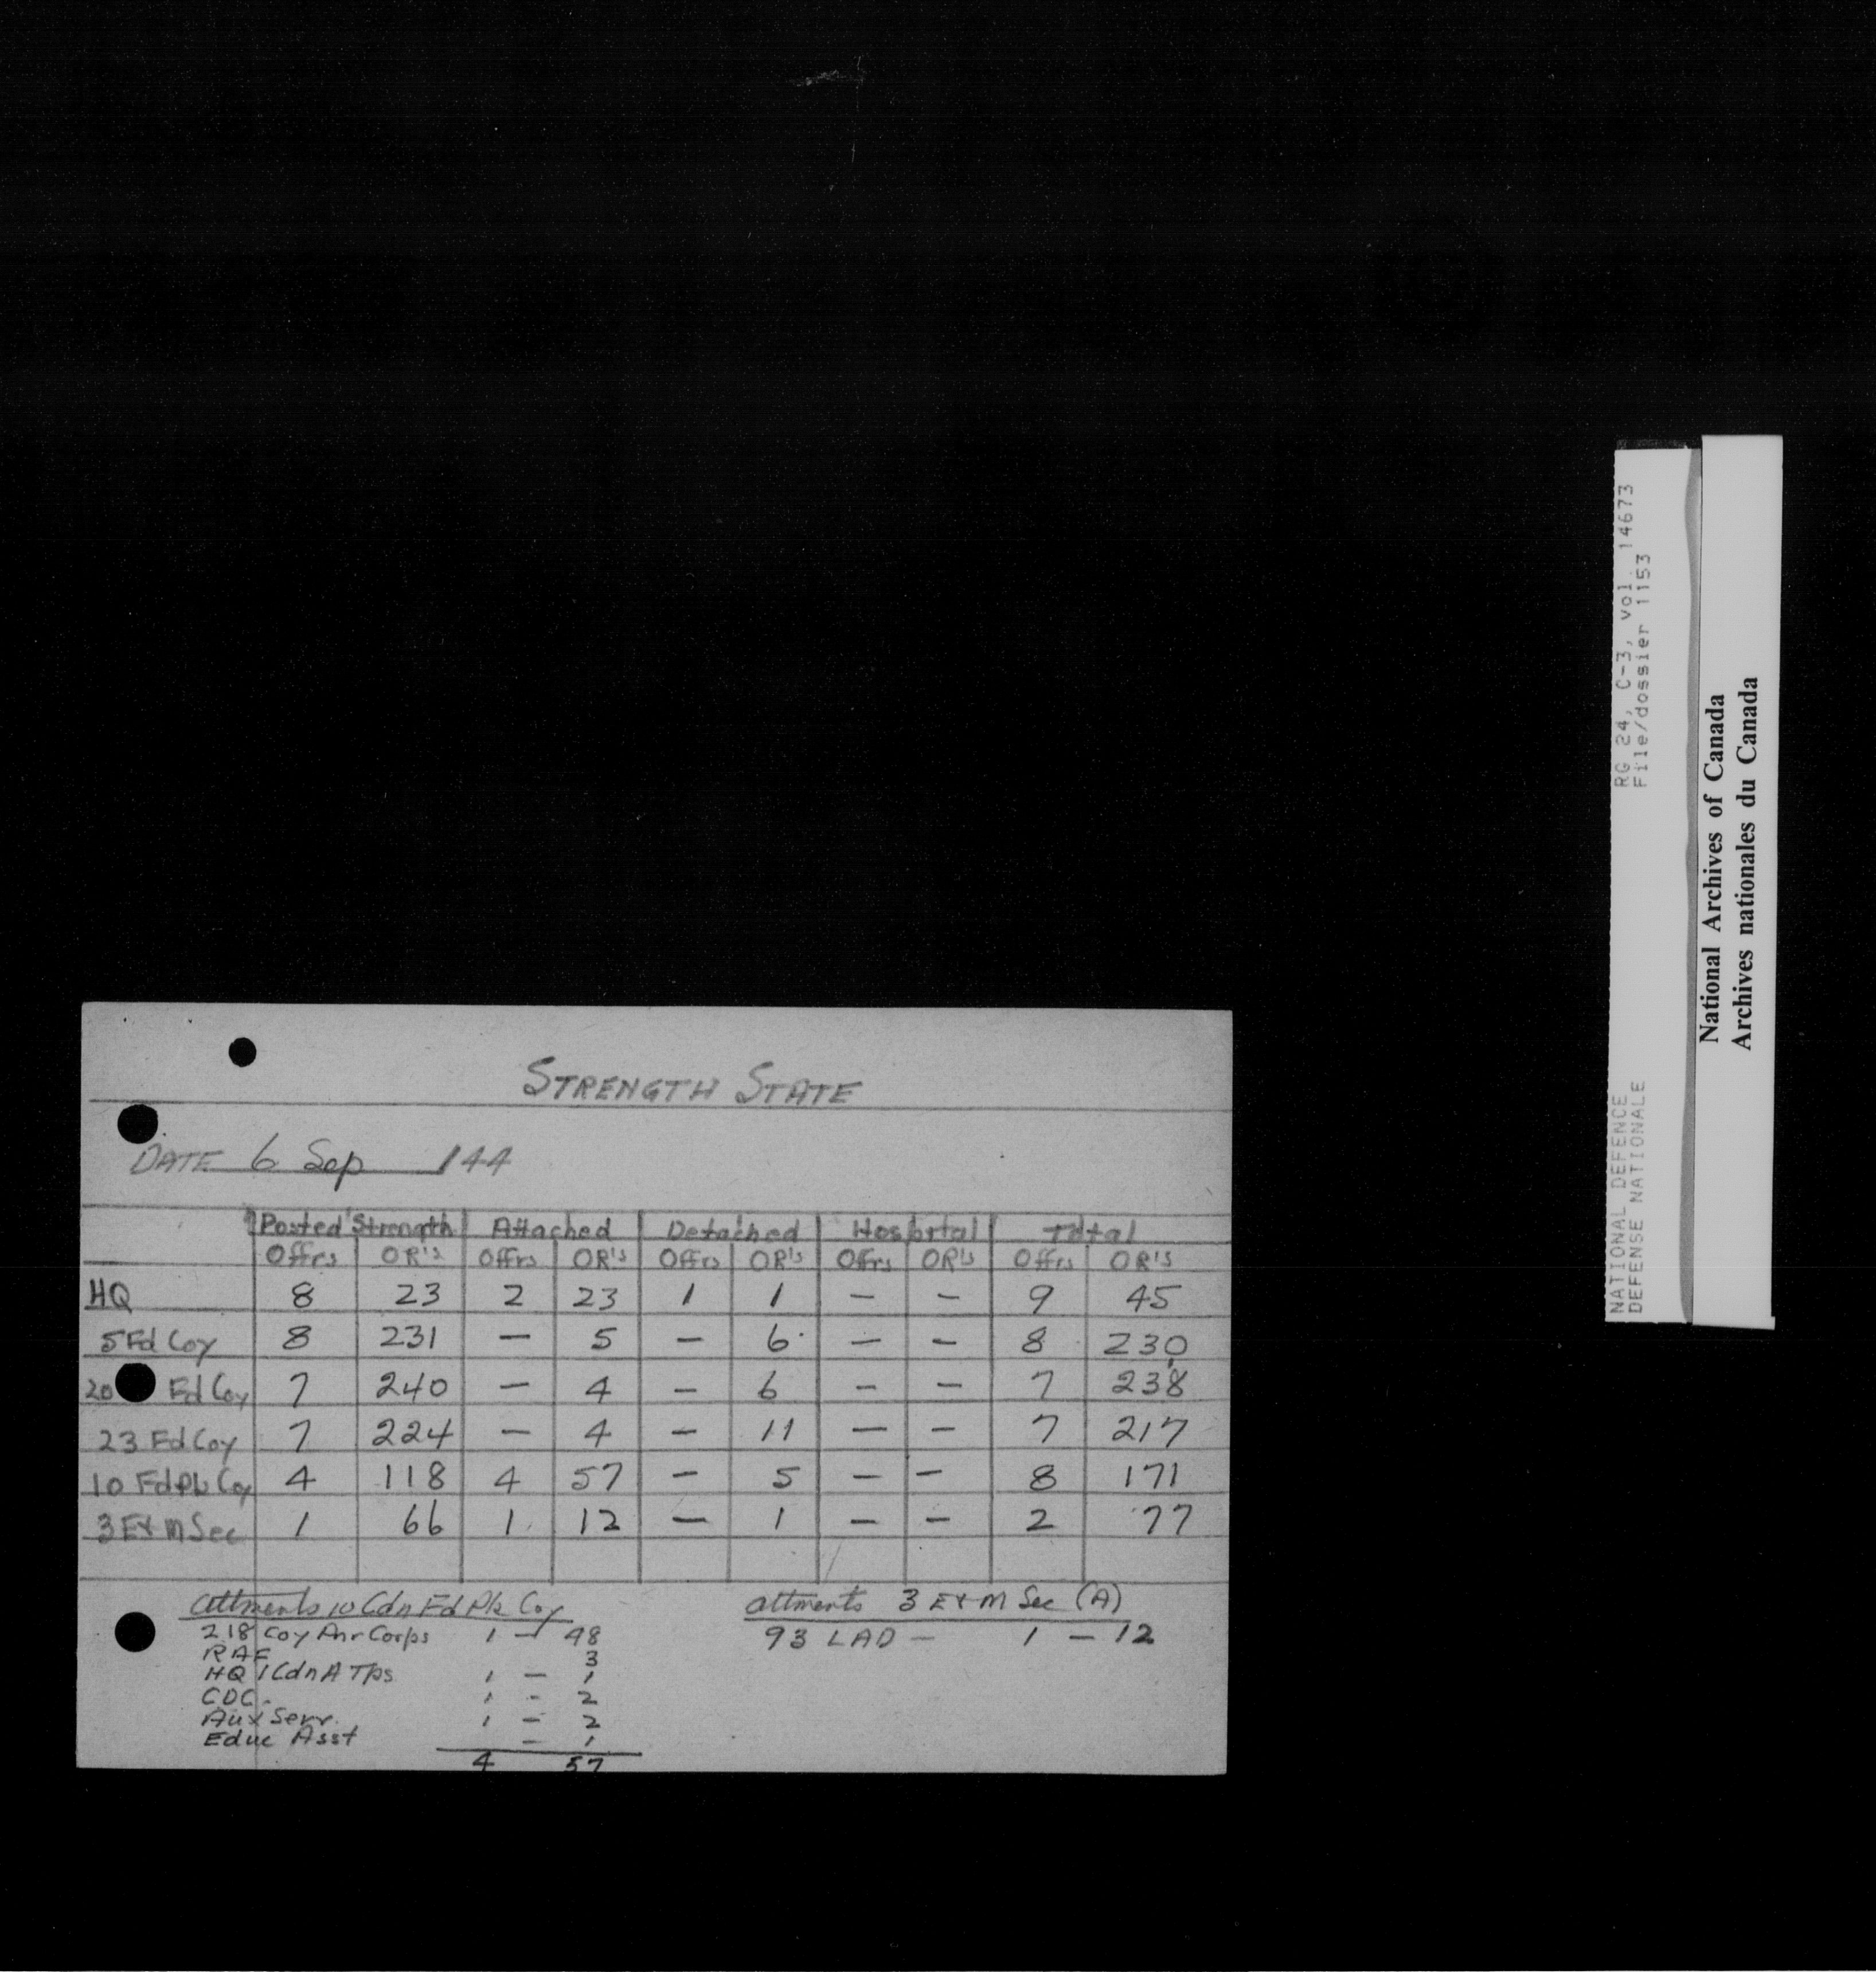 STRENGTH STATE
DATE 6 Sep /44
Posted Strength Attached Detached Hospital Total
Offrs OR's Offrs OR's Offrs OR's Offrs OR's Offrs OR's
HQ 8 23 2 23 1 1 — — 9 45
5 Fd Coy 8 231 — 5 — 6 — — 8 230
20 Fd Coy 7 240 — 4 — 6 — — 7 238
23 Fd Coy 7 224 — 4 — 11 — — 7 217
10 Fd Pk Coy 4 118 4 57 — 5 — — 8 171
3 E & M Sec 1 66 1 12 — 1 — — 2 77
attments 10 Cdn Fd Pk Coy
218 Coy Pnr Corps 1 — 48
RAF 3
HQ 1 Cdn A Tps 1 — 1
CDC. 1 — 2
Aux Serv. 1 — 2
Educ Asst — 1
4 57
attments 3 E & M Sec (A)
93 LAD — 1 — 12
RG 24, C-3, vol. 14673
File/dossier 1153
NATIONAL DEFENCE
DEFENSE NATIONALE
National Archives of Canada
Archives nationales du Canada